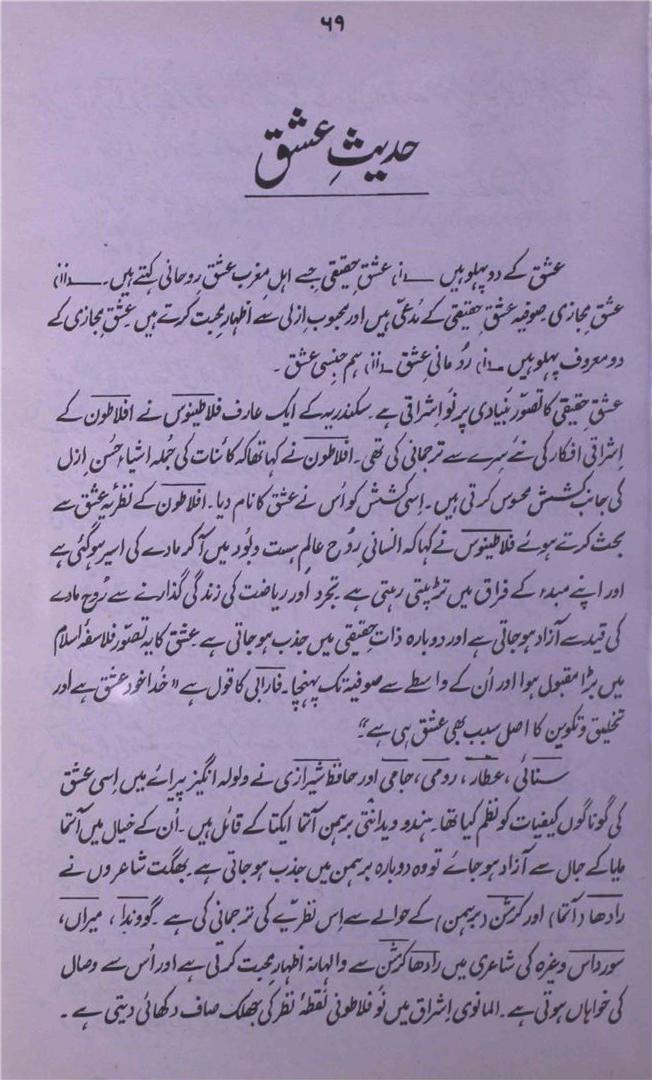 ۶۹
حدیثِ عشق
عشق کے دو پہلو ہیں ــــ (i) عشقِ حقیقی جسے اہلِ مغرب عشقِ روحانی کہتے ہیں۔ ــــ (ii)
عشقِ مجازی۔ صوفیہ عشقِ حقیقی کے مُدعی ہیں اور محبوبِ ازلی سے اظہارِ محبت کرتے ہیں عشقِ مجازی کے
دو معروف پہلو ہیں ــ (i) رُومانی عشق ــ (ii) ہم جنسی عشق ۔
عشقِ حقیقی کا تصوّر بُنیادی پر نَو اِشراقی ہے۔ سکندریہ کے ایک عارف فلاطینوس نے افلاطون کے
اِشراقی افکار کی نئے سِرے سے ترجمانی کی تھی۔ افلاطون نے کہا تھا کہ کائنات کی جُملہ اشیاء حُسنِ ازل
کی جانب کشش محسوس کرتی ہیں۔ اِسی کشش کو اُس نے عشق کا نام دیا۔ افلاطون کے نظریۂ عشق سے
بحث کرتے ہوئے فلاطینوس نے کہا کہ انسانی رُوح عالمِ ہست و بُود میں آ کر مادے کی اسیر ہو گئی ہے
اور اپنے مبداء کے فراق میں تڑپتی رہتی ہے۔ تجرد اور ریاضت کی زندگی گذارنے سے رُوح مادے
کی قید سے آزاد ہو جاتی ہے اور دوبارہ ذاتِ حقیقی میں جذب ہو جاتی ہے۔ عشق کا یہ تصوّر فلاسفۂ اسلام
میں بڑا مقبول ہوا اور اُن کے واسطے سے صوفیہ تک پہنچا۔ فارابی کا قول ہے "خُدا خود عشق ہے اور
تخلیق و تکوین کا اصل سبب بھی عشق ہی ہے"۔
سنائی، عطار، رومی، جامی اور حافظ شیرازی نے ولولہ انگیز پیرائے میں اِسی عشق
کی گوناگوں کیفیات کو نظم کیا تھا۔ ہندو ویدانتی برہمن آتما ایکتا کے قائل ہیں۔ اُن کے خیال میں آتما
مایا کے جال سے آزاد ہو جائے تو وہ دوبارہ برہمن میں جذب ہو جاتی ہے۔ بھگت شاعروں نے
رادھا (آتما) اور کرشن (برہمن) کے حوالے سے اِس نظریّے کی ترجمانی کی ہے۔ گووندا، میراں،
سورداس وغیرہ کی شاعری میں رادھا کرشن سے والہانہ اظہارِ محبت کرتی ہے اور اُس سے وصال
کی خواہاں ہوتی ہے۔ المانوی اِشراق میں نَو فلاطونی نُقطۂ نظر کی جھلک صاف دکھائی دیتی ہے۔